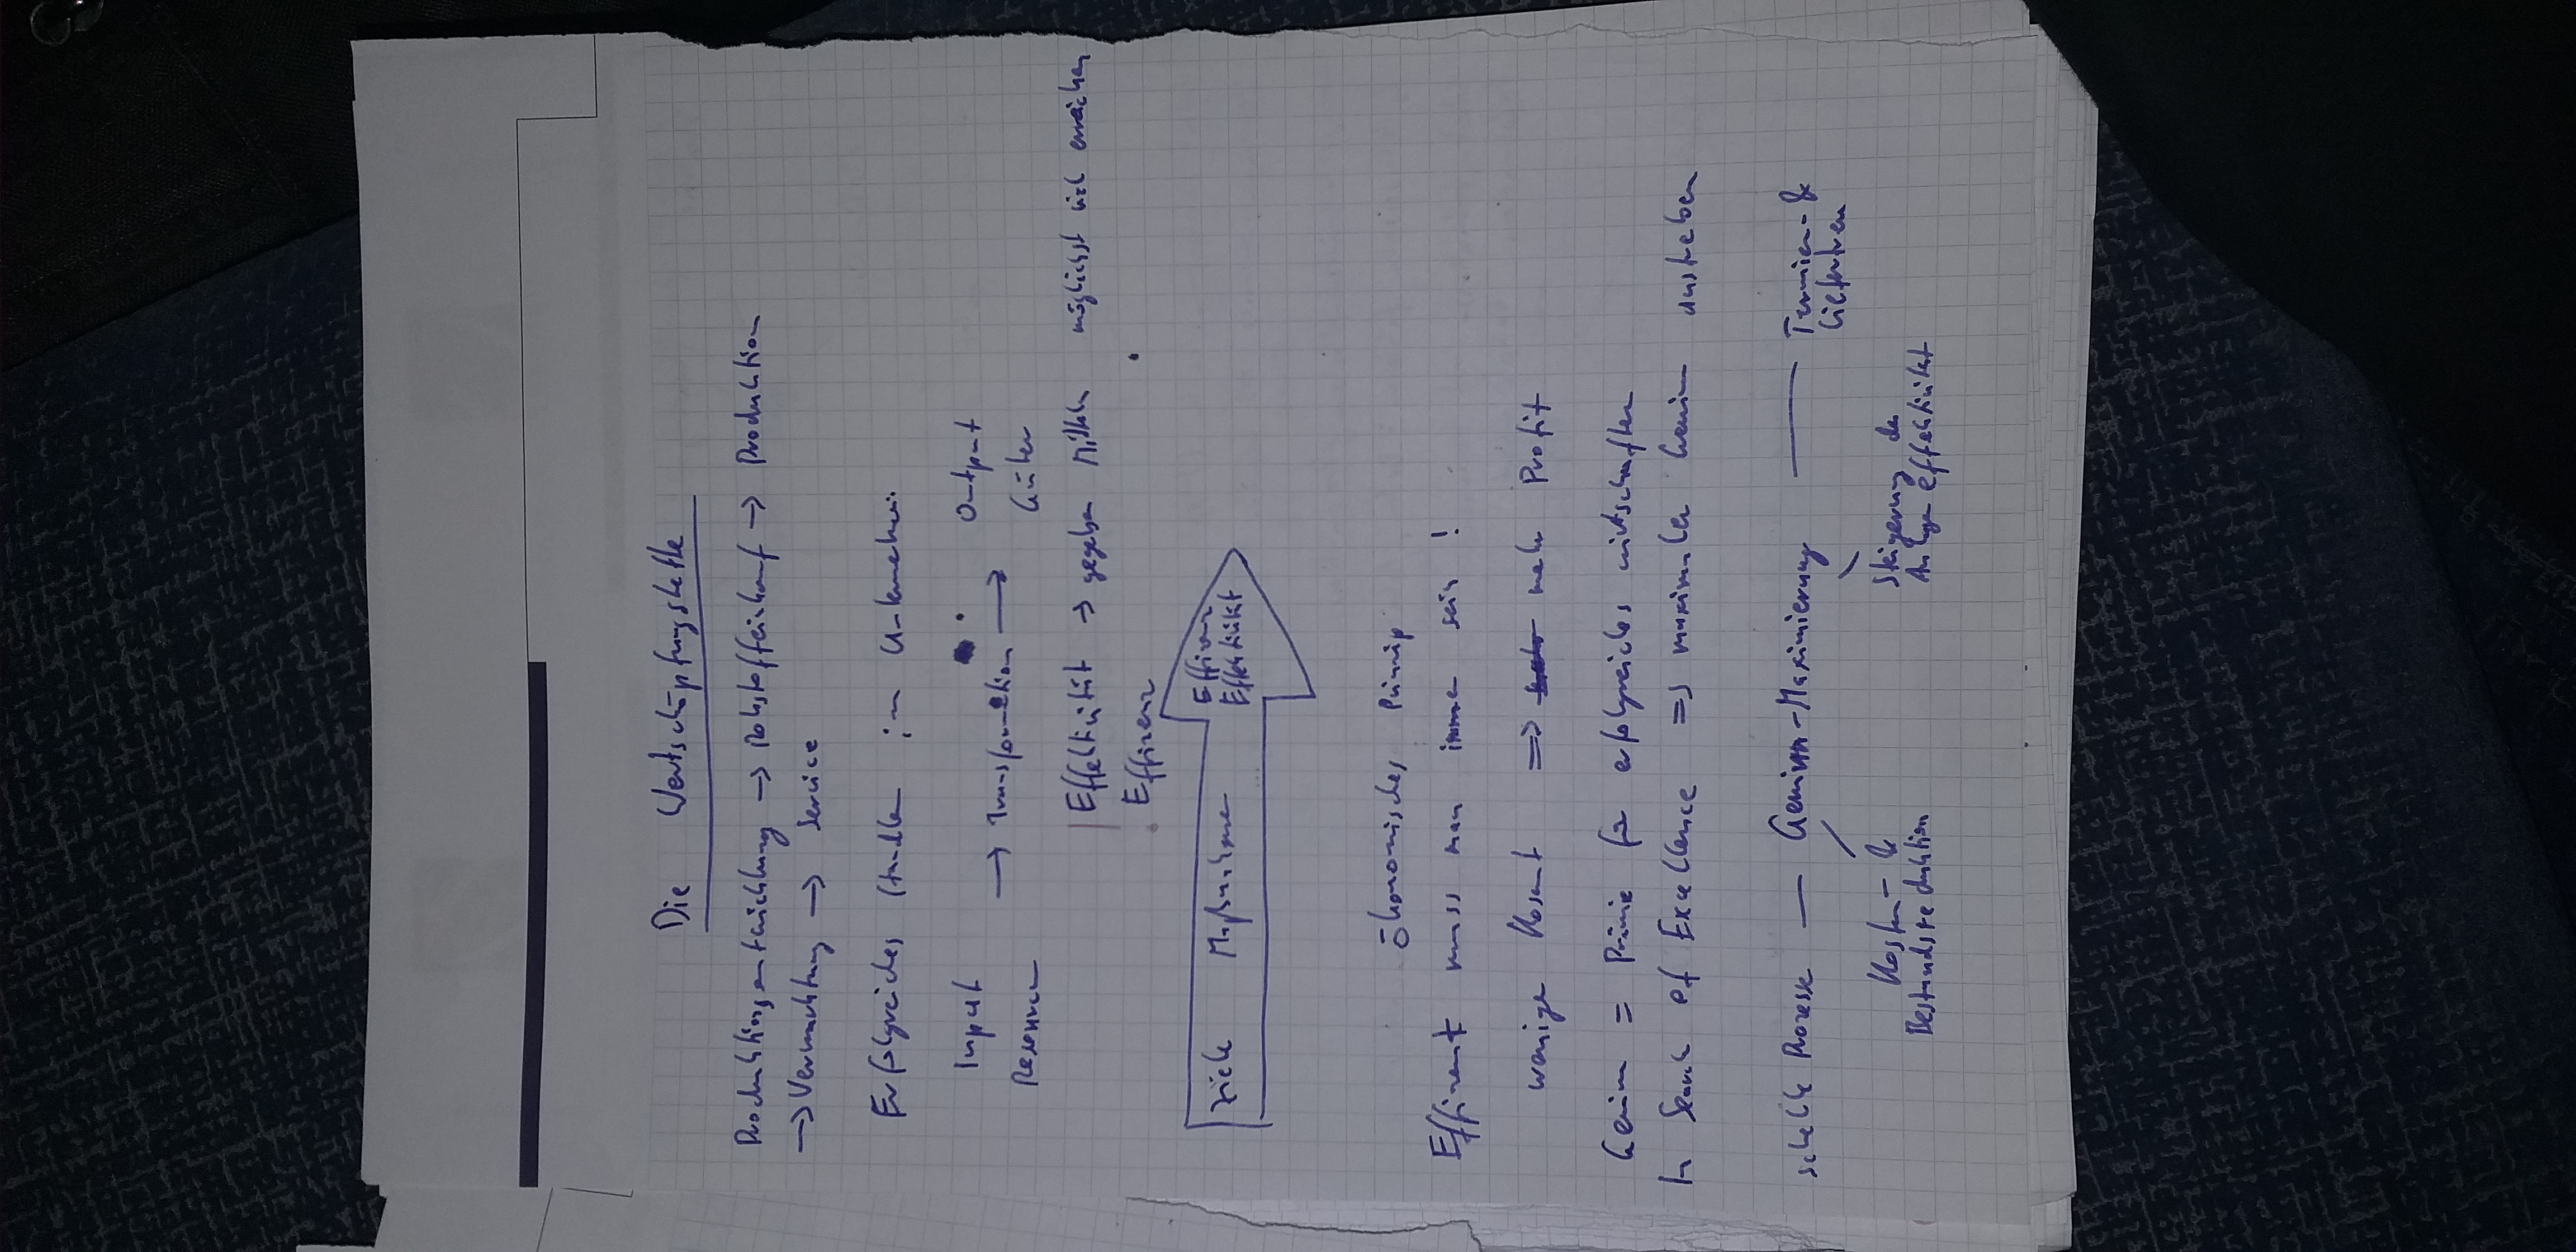 Die Wertschöpfungskette
Produktionsentwicklung → Rohstoffeinkauf → Produktion
→ Vermarktung → Service
Erfolgreiches Handeln im Unternehmen
Input Output
→ Transformation →
Resourcen Güter
Effektivität → gegeben Mitteln möglichst viel erreichen
Effizenz
Ziele Maßnahmen Effizenz
Effektivität
ökonomisches Prinzip
Effizent muss man immer sein !
weniger => mehr Profit
Gewinn = Prämie für erfolgreiches wirtschaften
In Search of Excellence => maximalen Gewinn anstreben
schelle Prozesse — Gewinn-Maximierung — Termien- &
Liefertreu
Kosten- & Steigerung der
Bestandsreduktion Anlageneffektivität